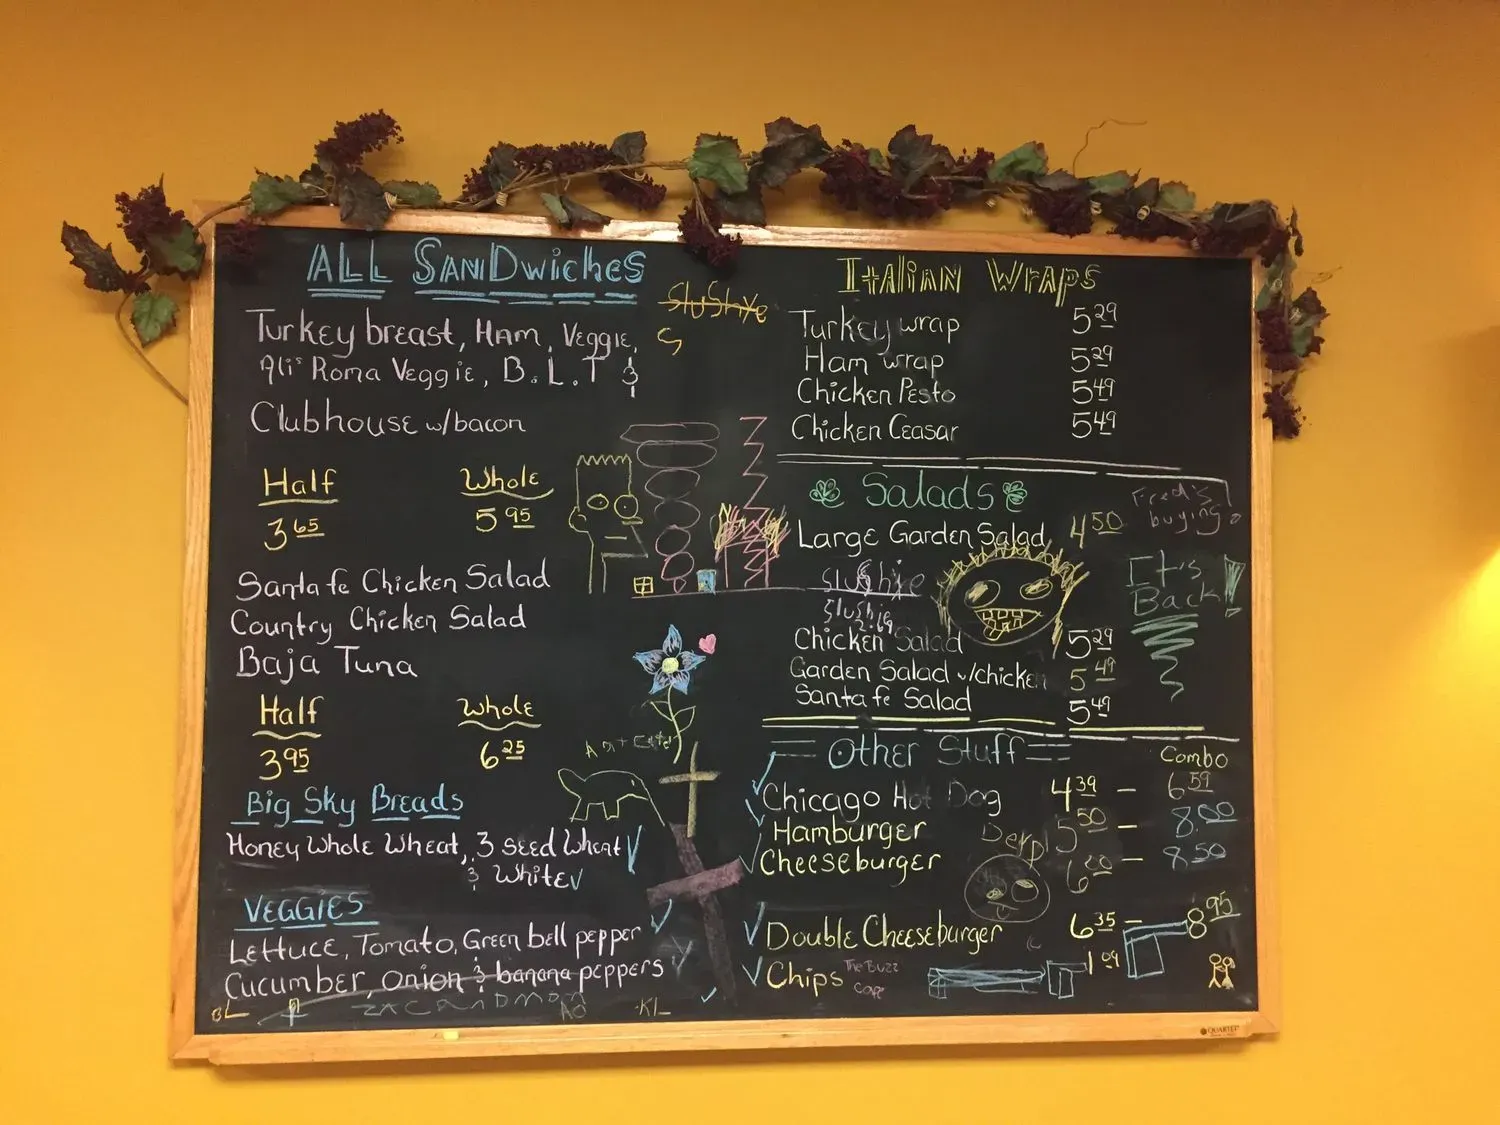 ALL SANDwiches
Turkey breast, Ham, Veggie,
Ali's Roma Veggie, B.L.T &
Clubhouse w/bacon
Half Whole
3 65 5 95
Santa fe Chicken Salad
Country Chicken Salad
Baja Tuna
Half Whole
3 95 6 25
Big Sky Breads
Honey Whole Wheat, 3 seed Wheat
& White
VEGGIES
Lettuce, Tomato, Green bell pepper
Cucumber, onion & banana peppers
BL
KL
SluShye
S
Italian Wraps
Turkey wrap 5 29
Ham wrap 5 29
Chicken Pesto 5 49
Chicken Ceasar 5 49
Salads
Large Garden Salad 4 50
Fred's
buying
It's
Back!
Slushie
Slushie
2.69
Chicken Salad 5 29
Garden Salad w/chicken 5 49
Santa fe Salad 5 49
Other Stuff
Combo
Chicago Hot Dog 4 39 – 6 59
Hamburger 5 50 – 8.00
Derp
Cheeseburger 6 00 – 8 50
Double Cheeseburger 6 35 – 8 95
Chips 1 09
The Buzz
Cafe
QUARTET